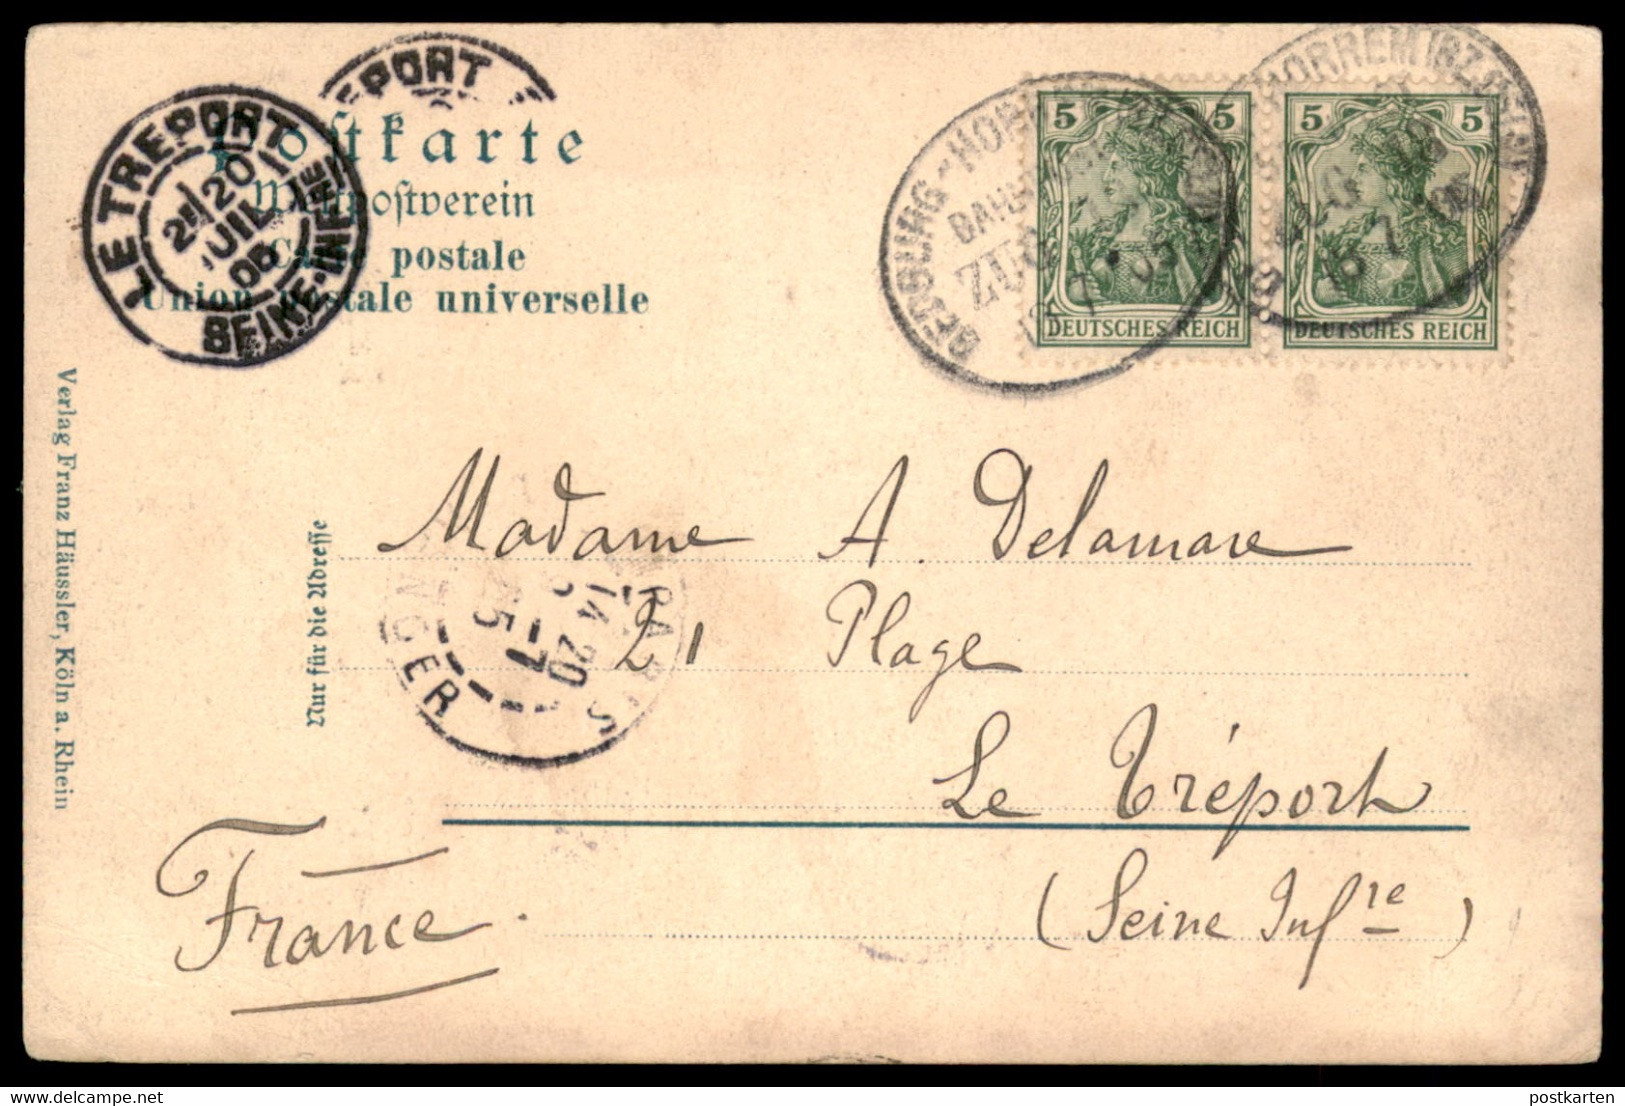 LE TREPORT
SEINE-INFRE
2E
20
JUIL
05
Postkarte
Weltpostverein
Carte postale
Union postale universelle
BEDBURG-HORREM
BAHNPOST
ZUG
7 05
5 5
DEUTSCHES REICH
5 5
DEUTSCHES REICH
Verlag Franz Häussler, Köln a. Rhein
Nur für die Adresse
Madame A. Delamare
21 Plage
Le Tréport
(Seine Infre)
France.
PARIS
20
postkarten